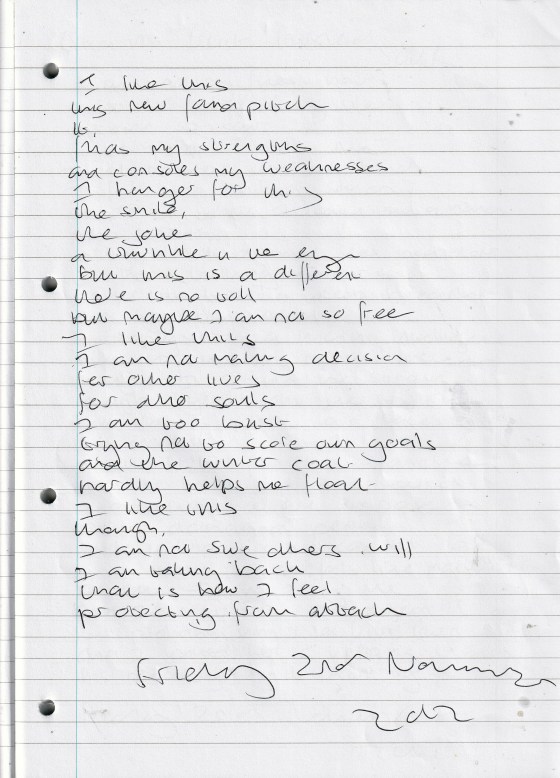 I like this
this new found pitch
it,
has my strengths
and consoles my weaknesses
I hanger for this
the smile,
the joke
a twinkle in the eye
but this is a different
there is no ball
but maybe I am not so free
I like this
I am not making decision
for other lives
for other souls
I am too busy
trying not to score own goals
and the winter coat
hardly helps me float
I like this
though,
I am not sure others will
I am taking back
what is how I feel
protecting from attack
Friday 2nd November